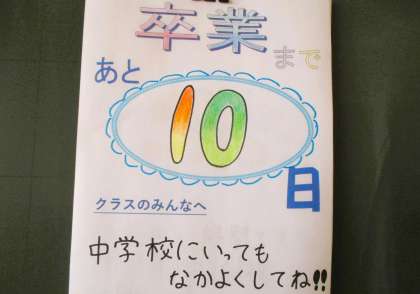 卒業まで
あと
10
日
クラスのみんなへ
中学校にいっても
なかよくしてね!!